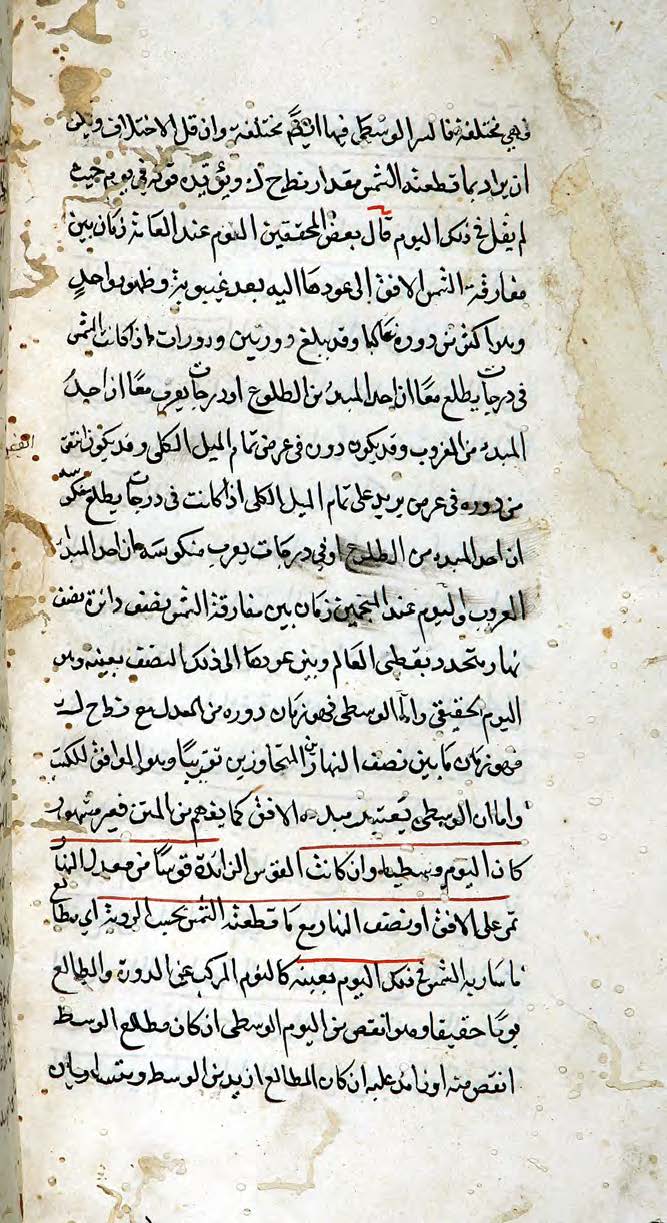 فهي مختلفة فالمر الوسطى فيها ايضًا مختلفة وان قل الاختلاف ويمكن
ان يراد بما قطعته الشمس مقدار نطاح له ويؤيده قوته في يوم حيث
لم يقل في ذلك اليوم قال بعض المحققين اليوم عند العامة زمان بين
مفارقة الشمس الافق الى عودها اليه بعد غيبوبة وظهور واحدٍ
وهو اكثر من دوره غالبا وقد يبلغ دورتين ودورات اذا كانت الشمس
في درجات يطلع معًا ان اخذ المبدء من الطلوع او درجات يغرب معًا ان اخذ
المبدء من الغروب وقد يكون دون في عرض تمام الميل الكلي وقد يكون انقص
من دوره في عرض يزيد على تمام الميل الكلي اذا كانت في درجات يطلع منكوسه
ان اخذ المبدء من الطلوع او في درجات يغرب منكوسه ان اخذ المبدء
الغروب واليوم عند المنجمين زمان بين مفارقة الشمس نصف دائرة نصف
نهار يتحدد بقطبي العالم وبين عودها الى ذلك النصف بعينه وهو
اليوم الحقيقي واما الوسطى فهو زمان دوره من المعدل مع
فهو زمان ما بين نصف النهارين المتجاوزين تقريبًا وهو الموافق للكتب
واما ان الوسطى يعتبر مبدءه الافق كما يفهم من المتن فغير مشهور
كان اليوم وسطيا وان كانت القوس الزائدة قوسًا من معدل النهار
تمر على الافق او نصف النهار مع ما قطعته الشمس بحسب الرؤية اي مطالع
ما سار به الشمس في ذلك اليوم بعينه كاليوم المركب عن الدورة والطالع
يومًا حقيقيا وهو انقص من اليوم الوسطى ان كان مطالع الوسط
انقص منه او زائد عليه ان كان المطالع ازيد من الوسط ويتساويان